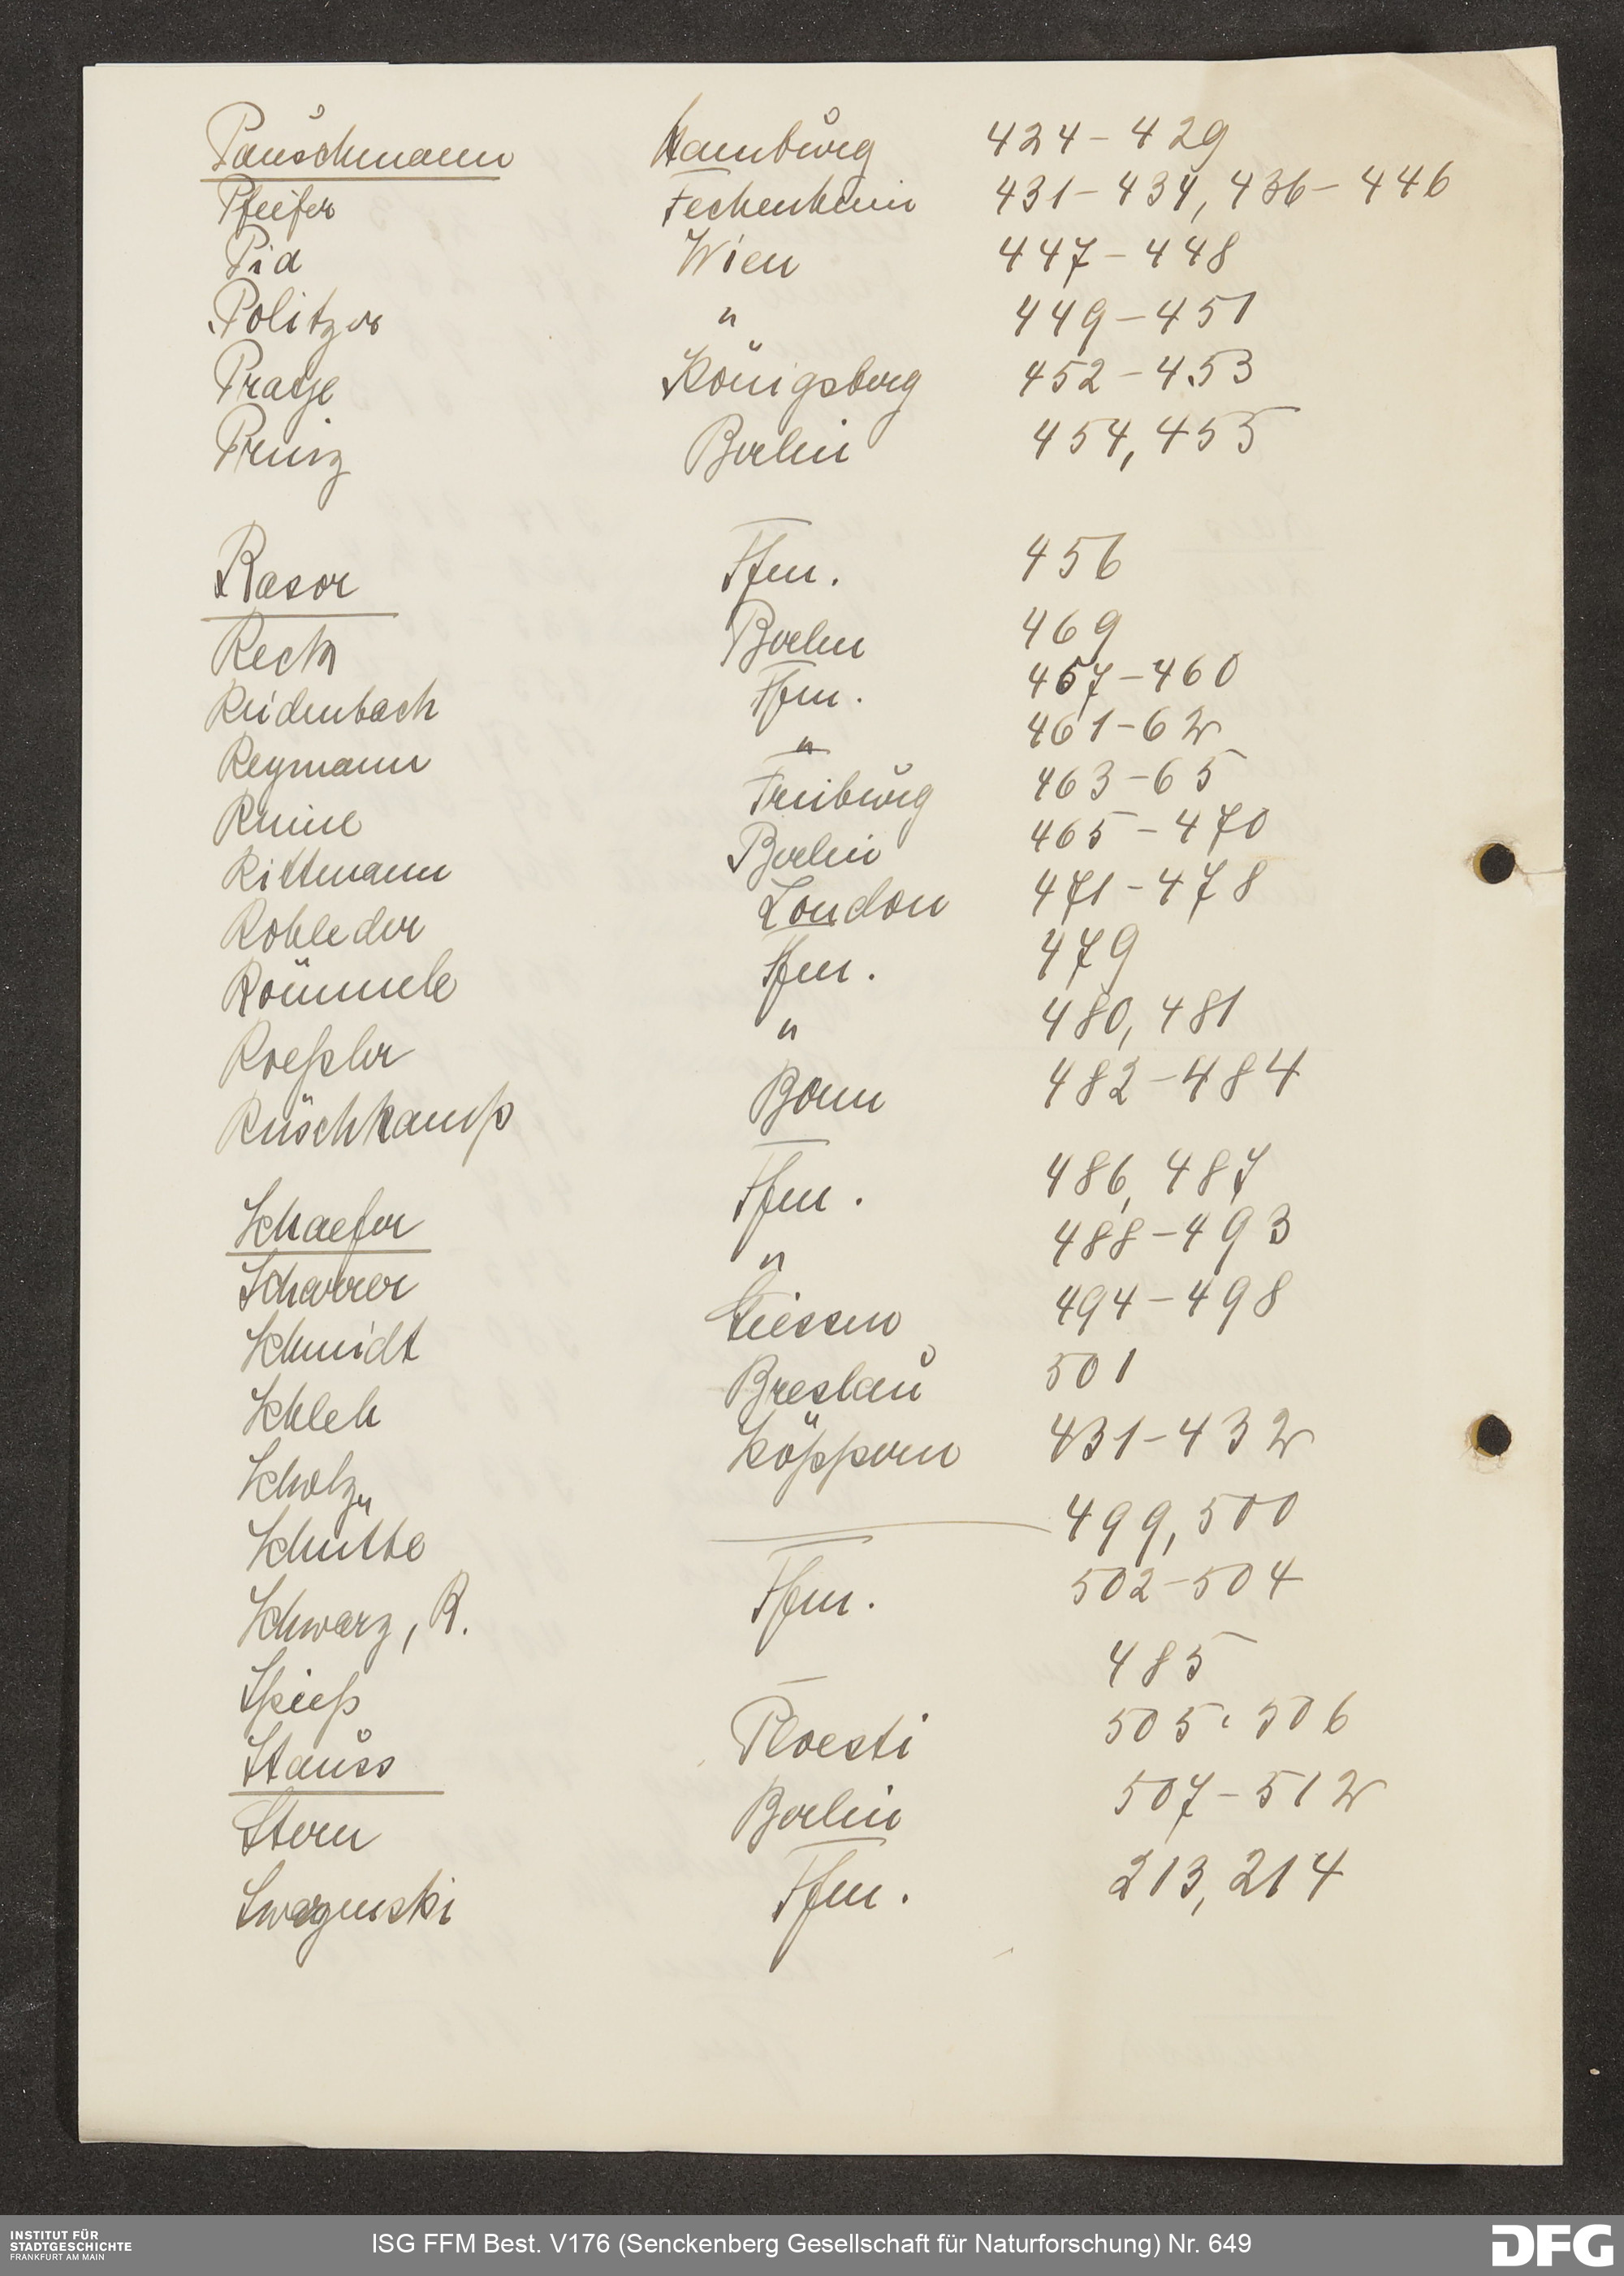 Pauschmann Hamburg 424-429
Pfeifer Fechenheim 431-434, 436-446
Pia Wien 447-448
Politzer " 449-451
Pratje Königsberg 452-453
Prinz Berlin 454, 455
Rasor Ffm. 456
Reck Berlin 469
Reidenbach Ffm. 457-460
Reymann " 461-62
Freiburg 463-65
Rittmann Berlin 465-470
Rohleder London 471-478
Römmele Ffm. 479
Roeßler " 480, 481
Rüschkamp Bonn 482-484
Schaefer Ffm. 486, 487
Scherrer " 488-493
Schmidt Giessen 494-498
Schleh Breslau 501
Scholz Köppern 431-432
Schütte — 499, 500
Schwarz, R. Ffm. 502-504
Spieß — 485
Stauss Ploesti 505, 506
Stern Berlin 507-512
Swarzenski Ffm. 213, 214
INSTITUT FÜR
STADTGESCHICHTE
FRANKFURT AM MAIN
ISG FFM Best. V176 (Senckenberg Gesellschaft für Naturforschung) Nr. 649
DFG